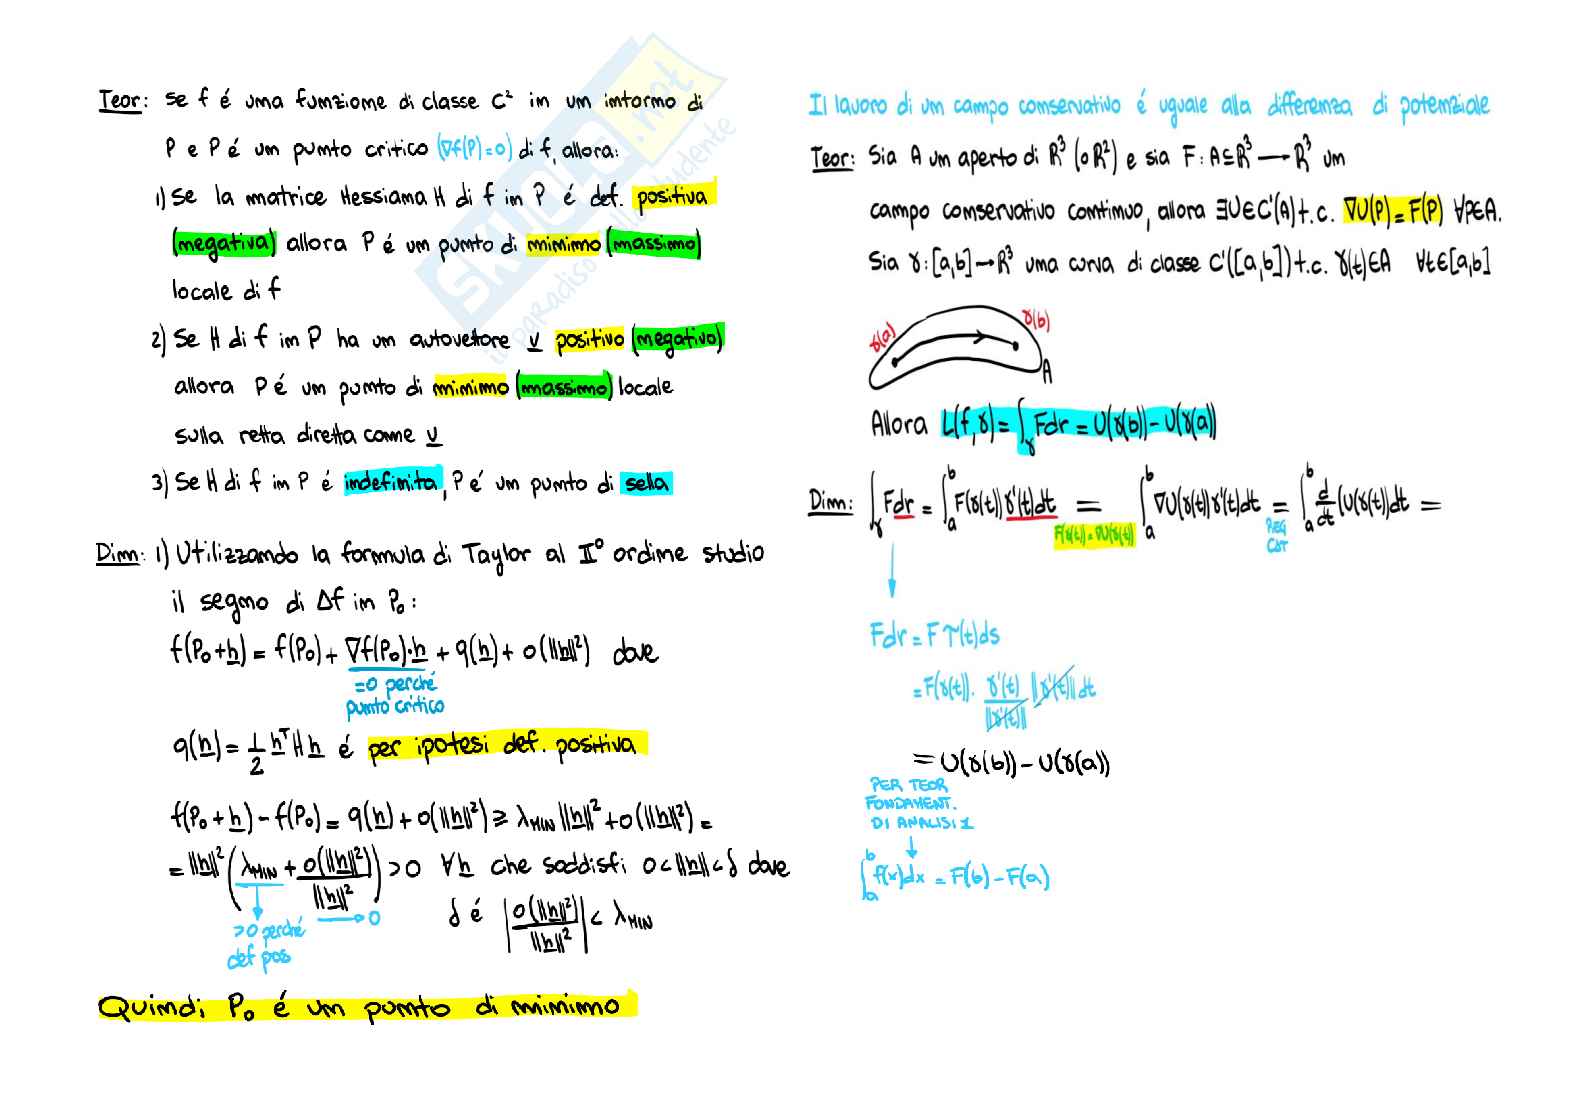 Teor: Se f é una funzione di classe C² in un intorno di
P e P é un punto critico (∇f(P)=0) di f, allora:
1) Se la matrice Hessiana H di f in P é def. positiva
(negativa) allora P é un punto di minimo (massimo)
locale di f
2) Se H di f in P ha un autovettore v positivo (negativo)
allora P é un punto di minimo (massimo) locale
sulla retta diretta come v
3) Se H di f in P é indefinita, P é un punto di sella
Dim: 1) Utilizzando la formula di Taylor al II° ordine studio
il segno di Δf in P₀:
f(P₀+h) = f(P₀) + ∇f(P₀)·h + q(h) + o(||h||²) dove
=0 perché
punto critico
q(h) = 1/2 hᵀHh é per ipotesi def. positiva
f(P₀+h) - f(P₀) = q(h) + o(||h||²) ≥ λMIN ||h||² + o(||h||²) =
= ||h||² (λMIN + o(||h||²)/||h||²) > 0 ∀h che soddisfi 0<||h||<δ dove
>0 perché
def pos
→ 0
δ é |o(||h||²)/||h||²| < λMIN
Quindi P₀ é un punto di minimo
Il lavoro di un campo conservativo é uguale alla differenza di potenziale
Teor: Sia A un aperto di R³ (o R²) e sia F: A⊆R³ → R³ un
campo conservativo continuo, allora ∃U∈C¹(A) t.c. ∇U(P) = F(P) ∀P∈A.
Sia γ: [a,b]→R³ una curva di classe C¹([a,b]) t.c. γ(t)∈A ∀t∈[a,b]
γ(a) γ(b)
A
Allora L(f,γ) = ∫γ Fdr = U(γ(b)) - U(γ(a))
Dim: ∫γ Fdr = ∫ₐᵇ F(γ(t)) γ'(t)dt = ∫ₐᵇ ∇U(γ(t)) γ'(t)dt = ∫ₐᵇ d/dt (U(γ(t))dt =
F(γ(t)) = ∇U(γ(t))
REG
CAT
Fdr = F T(t)ds
= F(γ(t)) · γ'(t)/||γ'(t)|| ||γ'(t)|| dt
= U(γ(b)) - U(γ(a))
PER TEOR
FONDAMENT.
DI ANALISI 1
∫ₐᵇ f(x)dx = F(b) - F(a)
SKUOLA.net
il paradiso dello studente